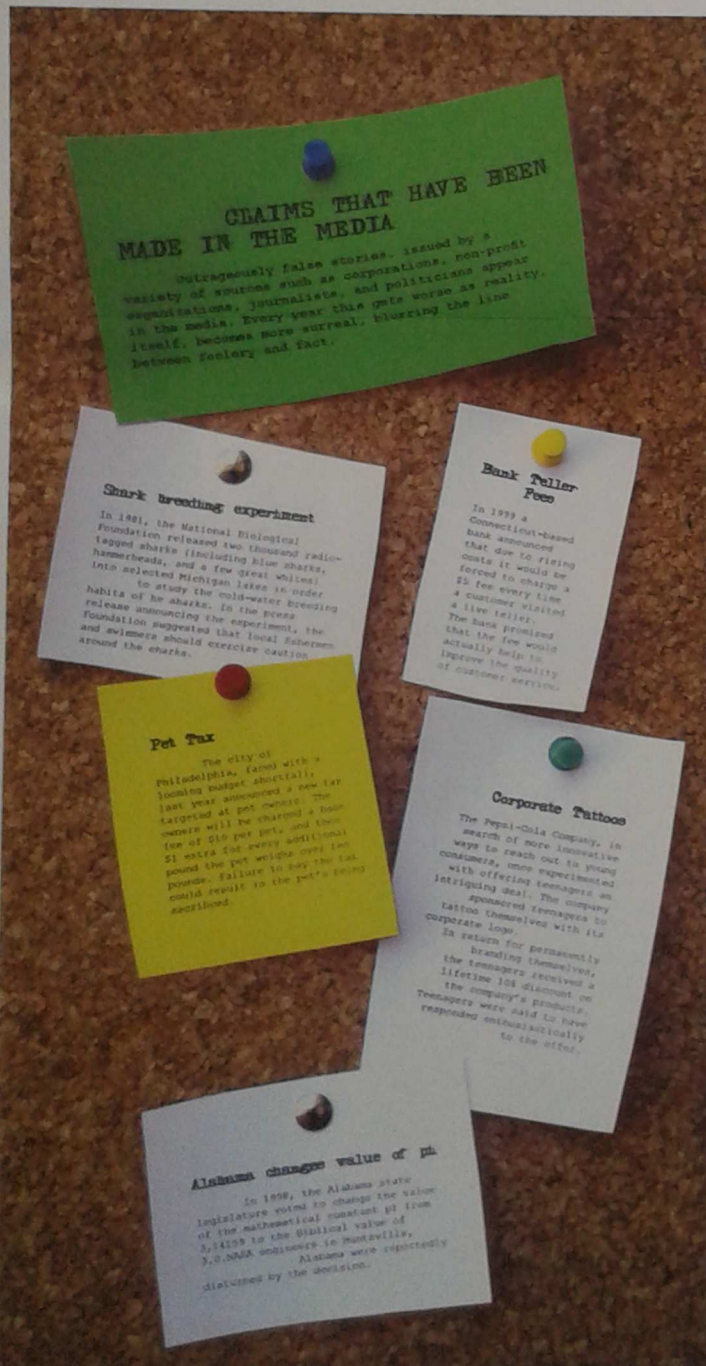 CLAIMS THAT HAVE BEEN
MADE IN THE MEDIA
Outrageously false stories, issued by a
variety of sources such as corporations, non-profit
organizations, journalists, and politicians appear
in the media. Every year this gets worse as reality,
itself, becomes more surreal, blurring the line
between foolery and fact.
Shark breeding experiment
In 1981, the National Biological
Foundation released two thousand radio-
tagged sharks (including blue sharks,
hammerheads, and a few great whites)
into selected Michigan lakes in order
to study the cold-water breeding
habits of he sharks. In the press
release announcing the experiment, the
Foundation suggested that local fishermen
and swimmers should exercise caution
around the sharks.
Bank Teller
Fees
In 1999 a
Connecticut-based
bank announced
that due to rising
costs it would be
forced to charge a
$5 fee every time
a customer visited
a live teller.
The bank promised
that the fee would
actually help to
improve the quality
of customer service.
Pet Tax
The city of
Philadelphia, faced with a
looming budget shortfall,
last year announced a new tax
targeted at pet owners. The
owners will be charged a base
fee of $10 per pet, and then
$1 extra for every additional
pound the pet weighs over ten
pounds. Failure to pay the tax
could result in the pet's being
sacrificed.
Corporate Tattoos
The Pepsi-Cola Company, in
search of more innovative
ways to reach out to young
consumers, once experimented
with offering teenagers an
intriguing deal. The company
sponsored teenagers to
tattoo themselves with its
corporate logo.
In return for permanently
branding themselves,
the teenagers received a
lifetime 10% discount on
the company's products.
Teenagers were said to have
responded enthusiastically
to the offer.
Alabama changes value of pi
In 1998, the Alabama state
legislature voted to change the value
of the mathematical constant pi from
3,14159 to the Biblical value of
3,0.NASA engineers in Huntsville,
Alabama were reportedly
disturbed by the decision.